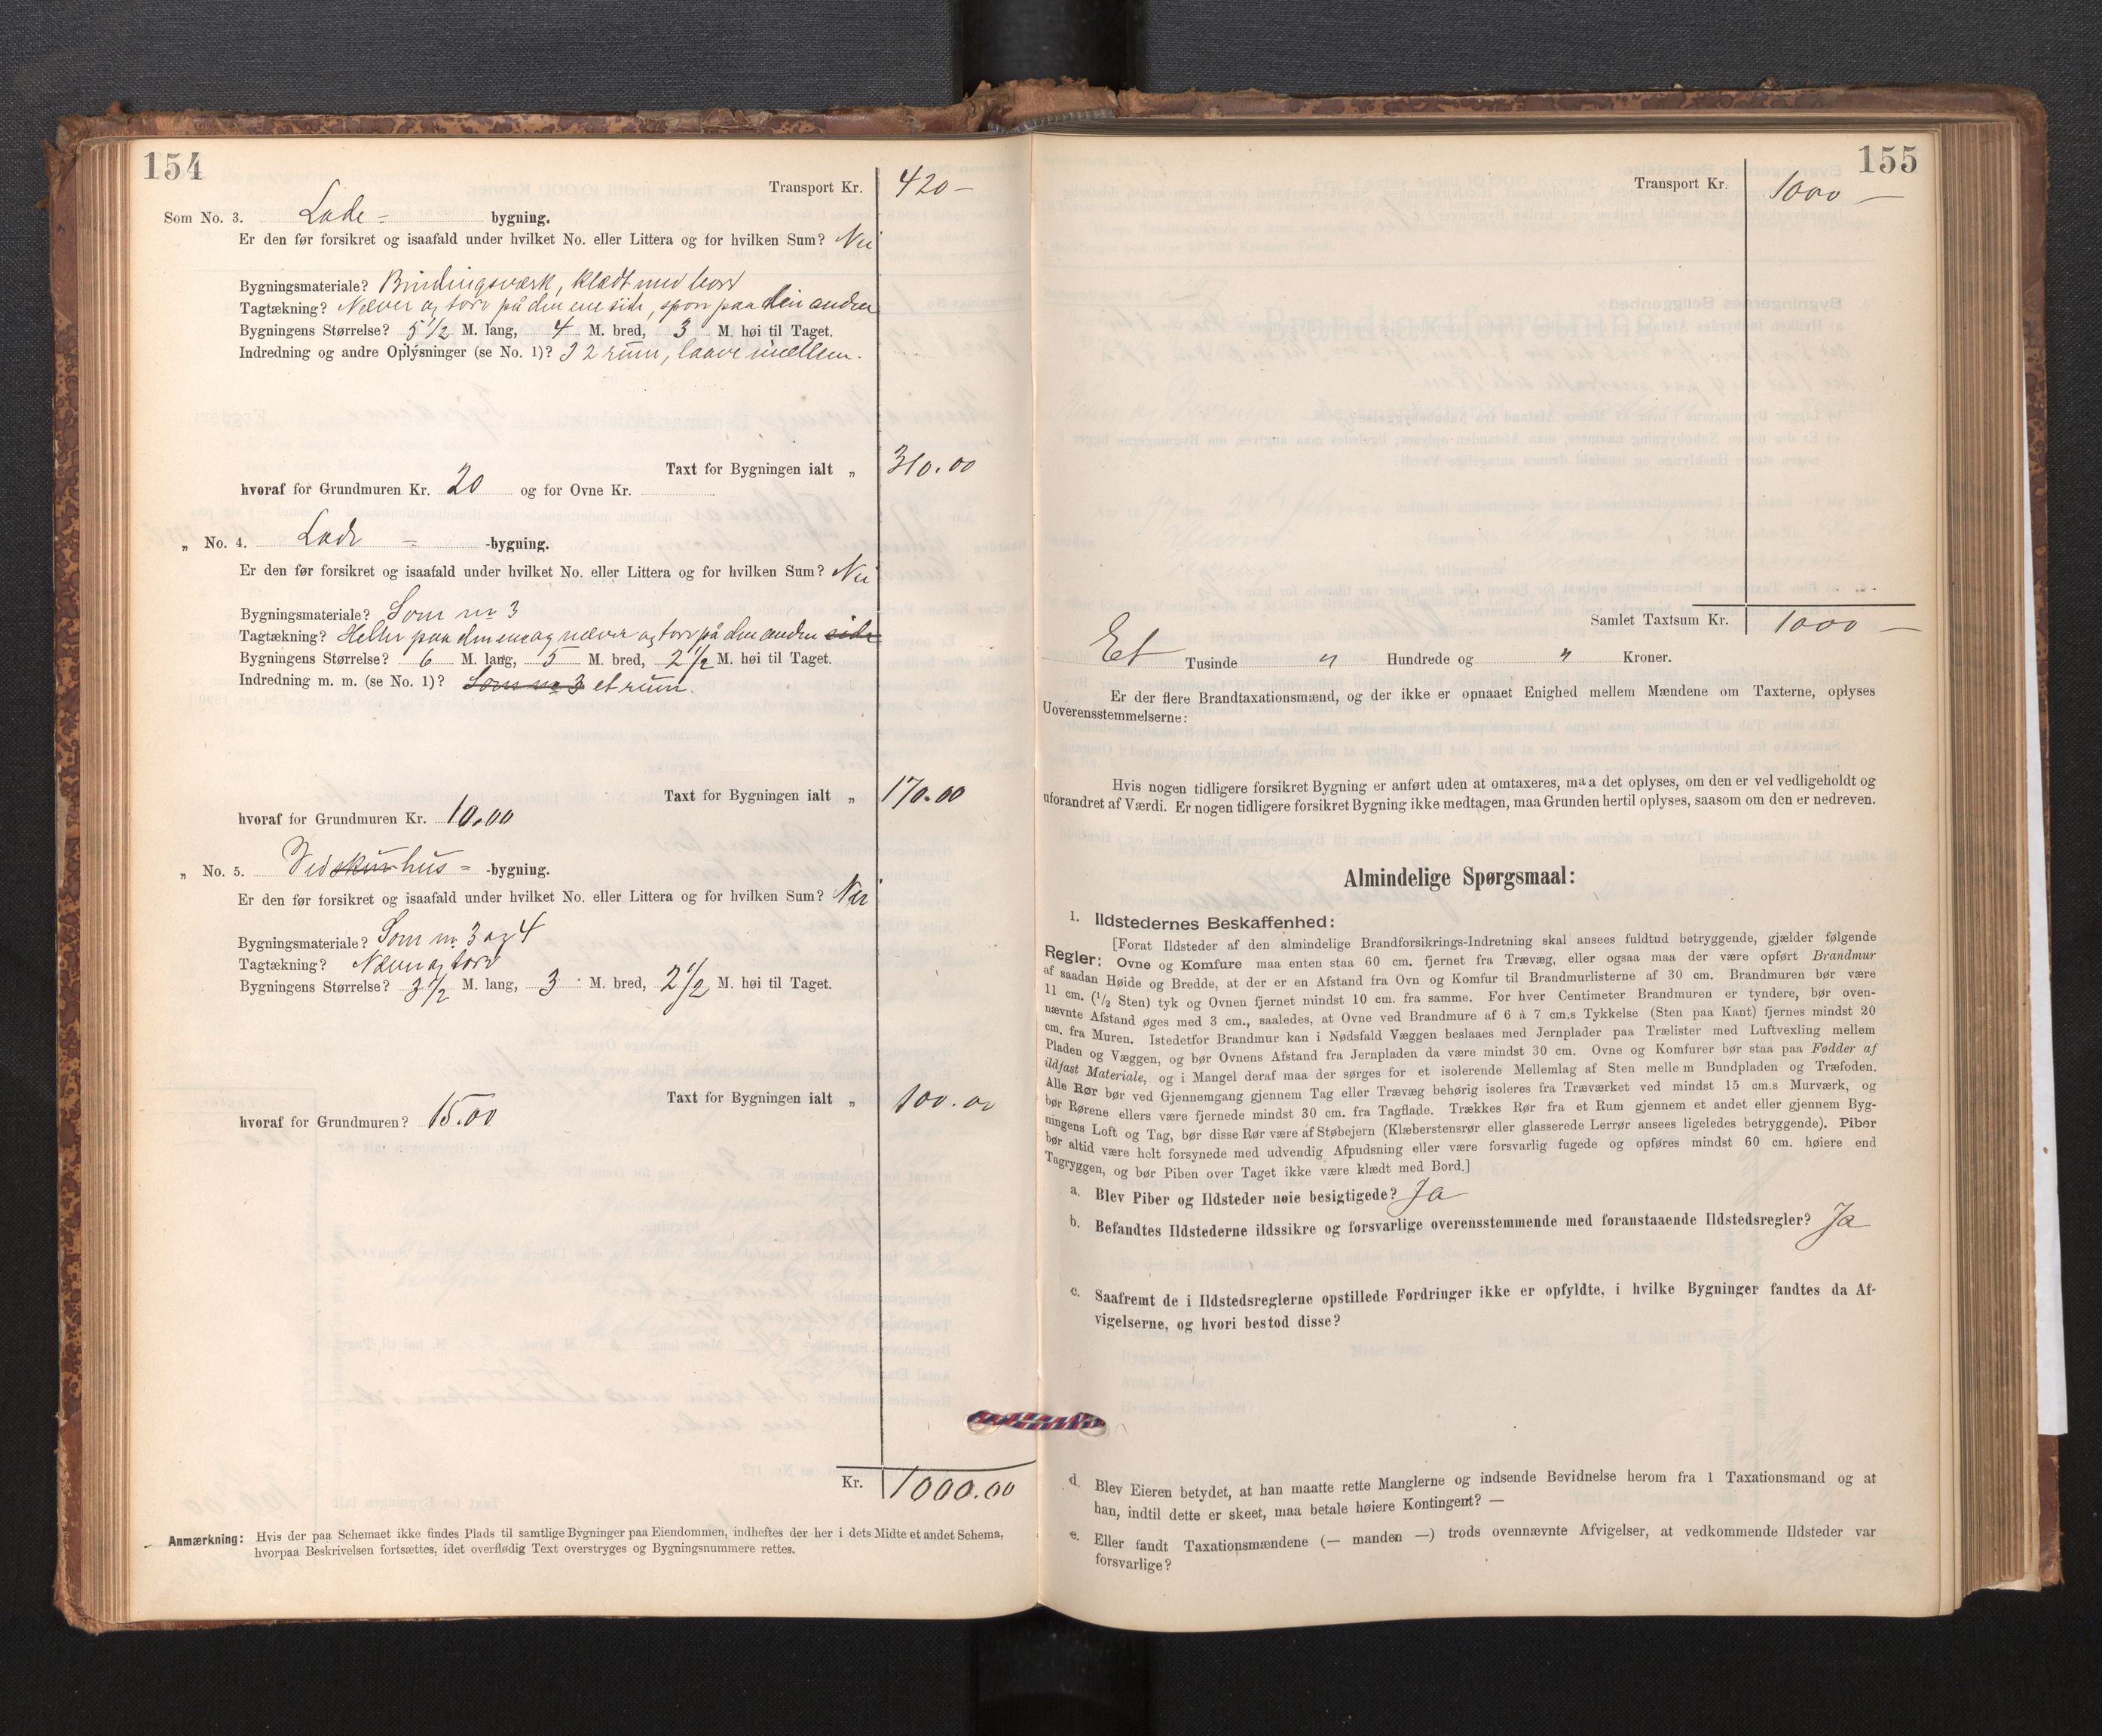 154
Transport Kr. 420 –
Som No. 3. Lade - bygning.
Er den før forsikret og isaafald under hvilket No. eller Littera og for hvilken Sum? Nei
Bygningsmateriale? Bindingsværk, klædt med bord
Tagtækning? Næver og torv på den ene side, spon paa den anden
Bygningens Størrelse? 5 1/2 M. lang, 4 M. bred, 3 M. høi til Taget.
Indredning og andre Oplysninger (se No. 1)? I 2 rum, laave imellem.
Taxt for Bygningen ialt „ 310.00
hvoraf for Grundmuren Kr. 20 og for Ovne Kr.
„ No. 4. Lade - -bygning.
Er den før forsikret og isaafald under hvilket No. eller Littera og for hvilken Sum? Nei
Bygningsmateriale? Som nr 3
Tagtækning? Heller paa den ene og næver og torv på den anden side
Bygningens Størrelse? 6 M. lang, 5 M. bred, 2 1/2 M. høi til Taget.
Indredning m. m. (se No. 1)? Som no 3 et rum.
Taxt for Bygningen ialt „ 170.00
hvoraf for Grundmuren Kr. 10.00
„ No. 5. Vedskurhus - -bygning.
Er den før forsikret og isaafald under hvilket No. eller Littera og for hvilken Sum? Nei
Bygningsmateriale? Som nr. 3 og 4
Tagtækning? Næver og torv
Bygningens Størrelse? 3 1/2 M. lang, 3 M. bred, 2 1/2 M. høi til Taget.
Taxt for Bygningen ialt „ 100.00
hvoraf for Grundmuren? 15.00
Kr. 1000.00
Anmærkning: Hvis der paa Schemaet ikke findes Plads til samtlige Bygninger paa Eiendommen, indheftes der her i dets Midte et andet Schema,
hvorpaa Beskrivelsen fortsættes, idet overflødig Text overstryges og Bygningsnummere rettes.
155
Transport Kr. 1000 –
Samlet Taxtsum Kr. 1000 –
Et Tusinde „ Hundrede og „ Kroner.
Er der flere Brandtaxationsmænd, og der ikke er opnaaet Enighed mellem Mændene om Taxterne, oplyses
Uoverensstemmelserne:
Hvis nogen tidligere forsikret Bygning er anført uden at omtaxeres, maa det oplyses, om den er vel vedligeholdt og
uforandret af Værdi. Er nogen tidligere forsikret Bygning ikke medtagen, maa Grunden hertil oplyses, saasom om den er nedreven.
Almindelige Spørgsmaal:
1. Ildstedernes Beskaffenhed:
[Forat Ildsteder af den almindelige Brandforsikrings-Indretning skal ansees fuldtud betryggende, gjælder følgende
Regler: Ovne og Komfure maa enten staa 60 cm. fjernet fra Trævæg, eller ogsaa maa der være opført Brandmur
af saadan Høide og Bredde, at der er en Afstand fra Ovn og Komfur til Brandmurlisterne af 30 cm. Brandmuren bør være
11 cm. (1/2 Sten) tyk og Ovnen fjernet mindst 10 cm. fra samme. For hver Centimeter Brandmuren er tyndere, bør oven-
nævnte Afstand øges med 3 cm., saaledes, at Ovne ved Brandmure af 6 à 7 cm.s Tykkelse (Sten paa Kant) fjernes mindst 20
cm. fra Muren. Istedetfor Brandmur kan i Nødsfald Væggen beslaaes med Jernplader paa Trælister med Luftvexling mellem
Pladen og Væggen, og bør Ovnens Afstand fra Jernpladen da være mindst 30 cm. Ovne og Komfurer bør staa paa Fødder af
ildfast Materiale, og i Mangel deraf maa der sørges for et isolerende Mellemlag af Sten mellem Bundpladen og Træfoden.
Alle Rør bør ved Gjennemgang gjennem Tag eller Trævæg behørig isoleres fra Træværket ved mindst 15 cm.s Murværk, og
bør Rørene ellers være fjernede mindst 30 cm. fra Tagflade. Trækkes Rør fra et Rum gjennem et andet eller gjennem Byg-
ningens Loft og Tag, bør disse Rør være af Støbejern (Klæberstensrør eller glasserede Lerrør ansees ligeledes betryggende). Piber
bør altid være helt forsynede med udvendig Afpudsning eller være forsvarlig fugede og opføres mindst 60 cm. høiere end
Tagryggen, og bør Piben over Taget ikke være klædt med Bord.]
a. Blev Piber og Ildsteder nøie besigtigede? Ja
b. Befandtes Ildstederne ildssikre og forsvarlige overensstemmende med foranstaaende Ildstedsregler? Ja
c. Saafremt de i Ildstedsreglerne opstillede Fordringer ikke er opfyldte, i hvilke Bygninger fandtes da Af-
vigelserne, og hvori bestod disse?
d. Blev Eieren betydet, at han maatte rette Manglerne og indsende Bevidnelse herom fra 1 Taxationsmand og at
han, indtil dette er skeet, maa betale høiere Kontingent? —
e. Eller fandt Taxationsmændene (— manden —) trods ovennævnte Afvigelser, at vedkommende Ildsteder var
forsvarlige?